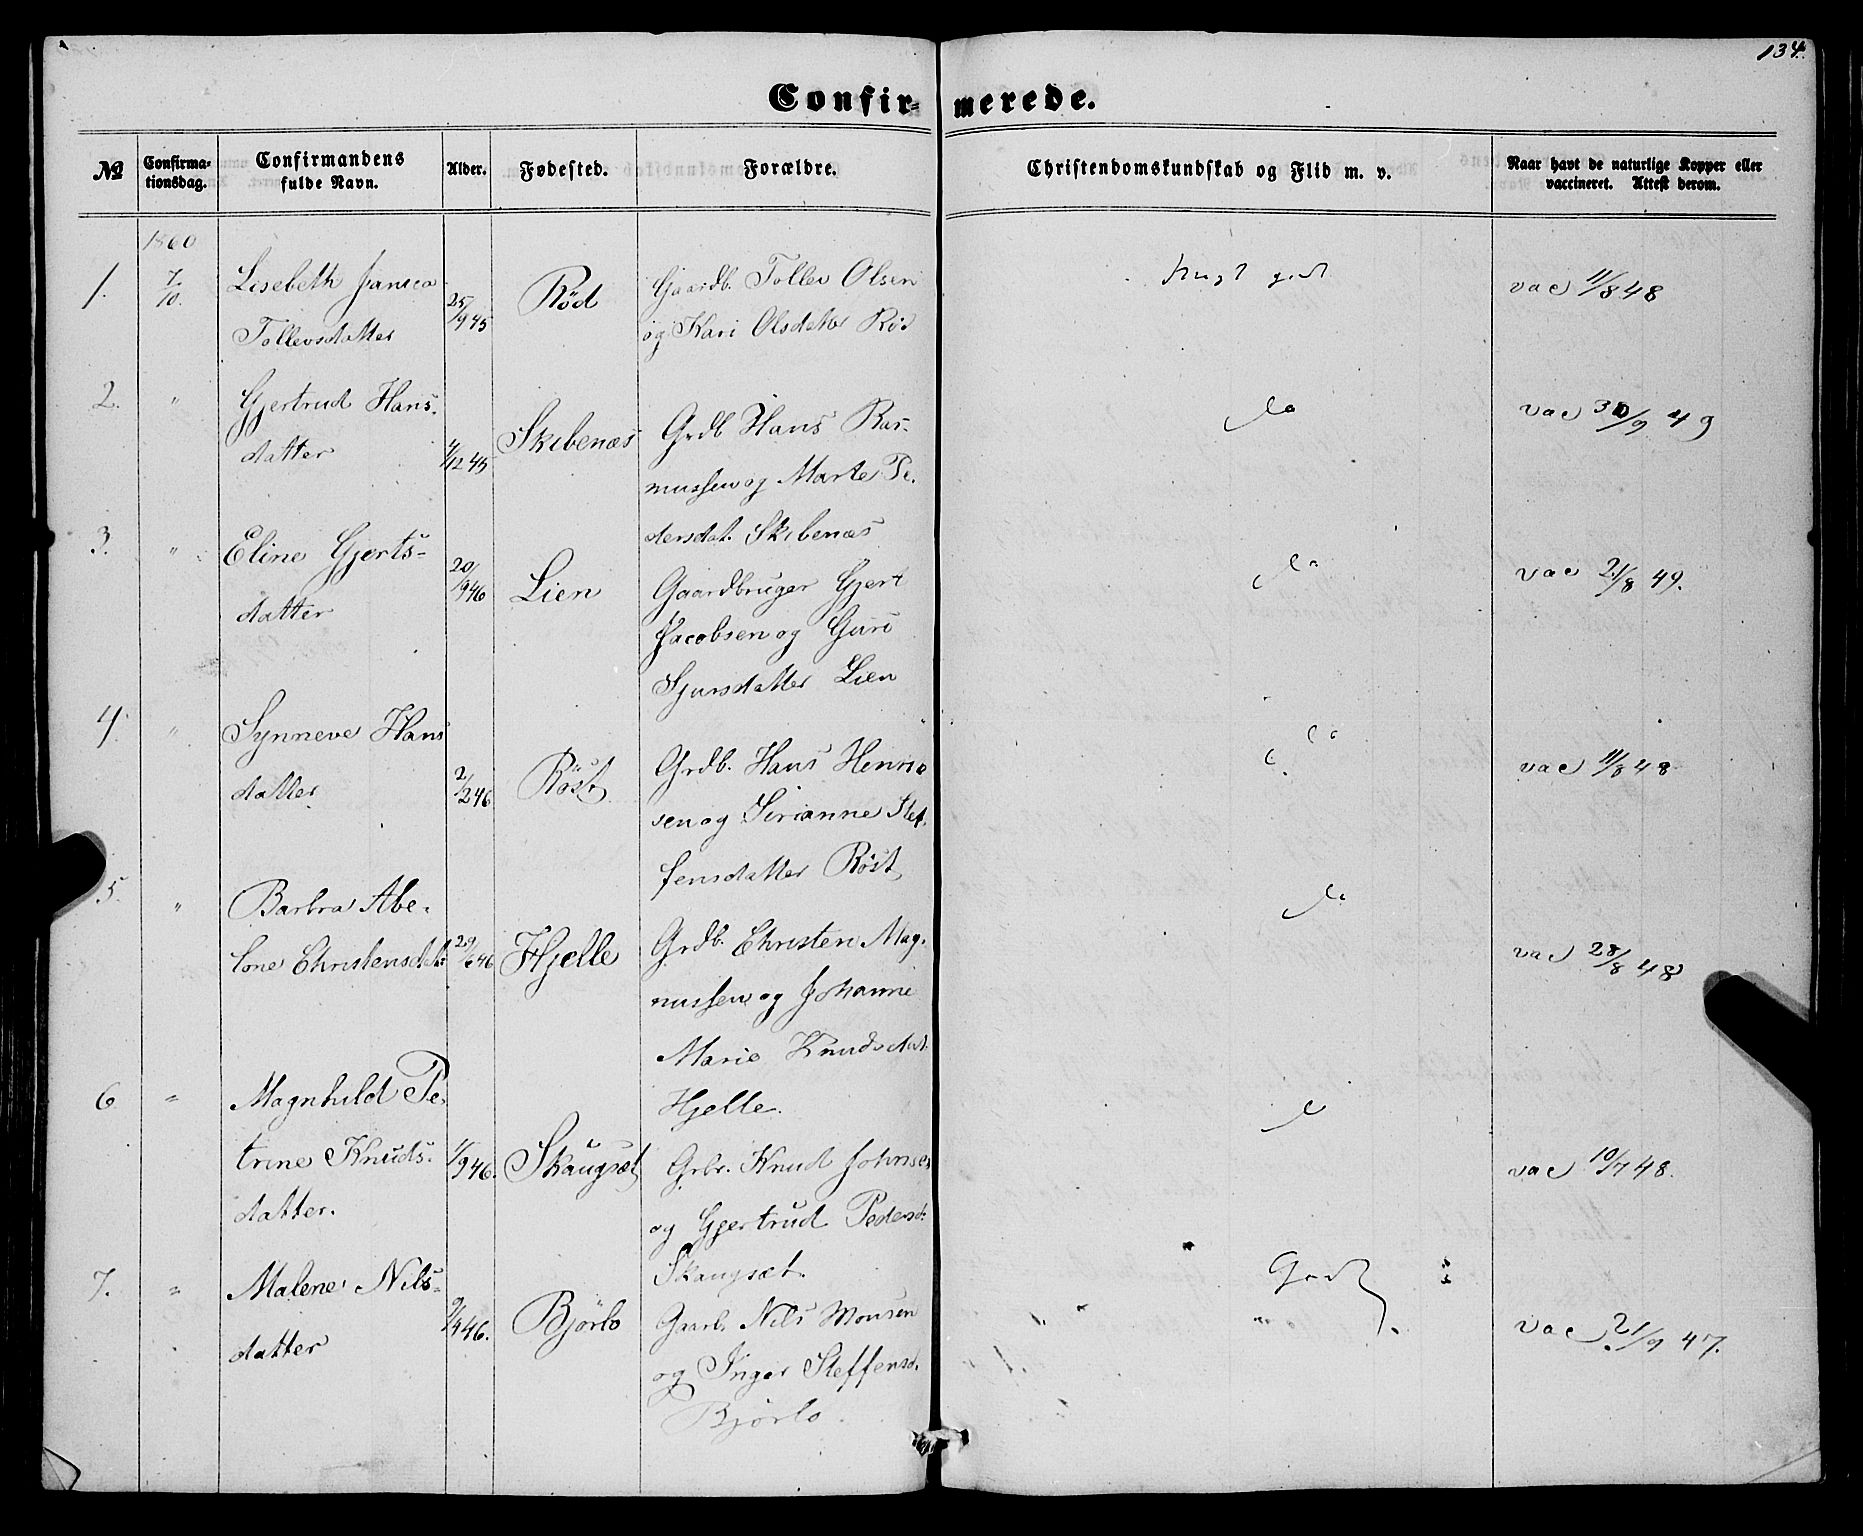 134.
Confirmerede.
No
Confirmationsdag.
Confirmandens fulde Navn.
Alder.
Fødested.
Forældre.
Christendomskundskab og Flid m. v.
Naar havt de naturlige Kopper eller vaccineret. Attest derom.
1860
1.
7/10.
Lisebeth
Tollevsdatter
25/9 45
Rød
Gaardb. Tollev Olsen
og Kari Olsdatter Rød
godt
vac 11/8 48
2.
"
Gjertrud Hans-
datter
4/12 45
Skibenæs
Grdb Hans Ras-
mussen og Marte Pe-
dersdat. Skibenæs
do
vac 30/9 49
3.
"
Eline Gjerts-
datter
20/9 46
Lien
Gaardbruger Gjert
Jacobsen og Guri
Sjursdatter Lien
do
vac 21/8 49.
4.
"
Synneve Hans
datter
2/2 46
Röst
Grdb. Hans Henrik
sen og Sirianne Stef-
fensdatter Röst
do
vac 11/8 48
5.
"
Barbra Abe-
lone Christensdat:
29/6 46
Hjelle
Grdb. Christen Mag-
nussen og Johanne
Marie Knudsdat.
Hjelle.
do
vac 28/8 48
6
"
Magnhild Pe-
trine Knuds-
datter.
1/9 46.
Skaugsæt
Grbr. Knud Johnsen
og Gjertrud Pedersd:
Skaugsæt.
vac 10/7 48.
7.
"
Malene Nils-
datter
9/4 46.
Bjørlo
Gaarb. Nils Monsen
og Inger Steffensd.
Bjørlo.
Godt
vac 21/9 47.